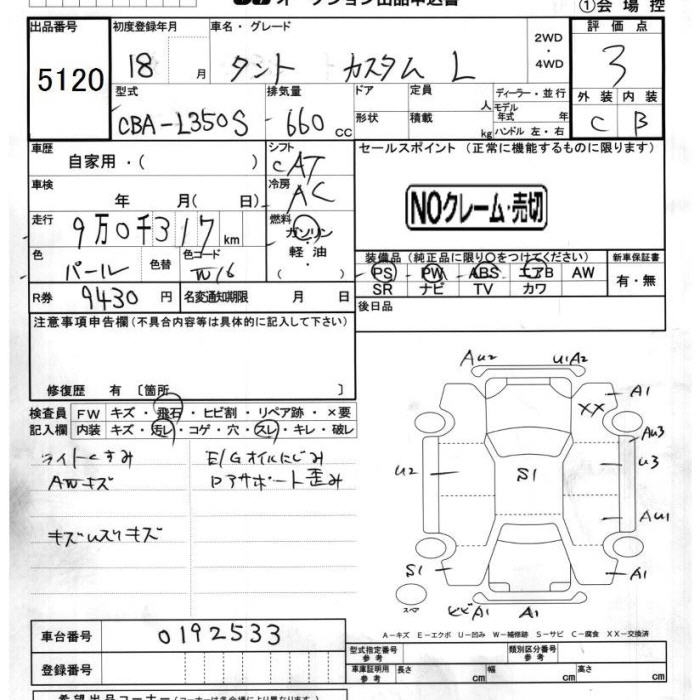 オークション出品申込書
①会場控
出品番号 初度登録年月 車名・グレード 2WD ・ 4WD 評価点
5120 18 月 タント カスタム L 3
型式 排気量 ドア 定員 人 ディーラー・並行 外装 内装
CBA-L350S 660 cc 形状 積載 kg モデル年式 年 ハンドル 左・右 C B
車歴 シフト セールスポイント (正常に機能するものに限ります)
自家用・( ) CAT
車検 冷房
年 月( 日) AC
NOクレーム・売切
走行 燃料
9万0千317km ガソリン
軽・油
( )
色 色替 色コード 装備品(純正品に限り○をつけてください) 新車保証書
パール W16 PS PW ABS エアB AW 有・無
SR ナビ TV カワ
R券 9430円 名変通知期限 月 日 後日品
注意事項申告欄(不具合内容等は具体的に記入して下さい)
修復歴 有 〔箇所 〕
検査員 FW キズ・飛石・ヒビ割・リペア跡・×要
記入欄 内装 キズ・汚レ・コゲ・穴・スレ・キレ・破レ
ライトくすみ E/Gオイルにじみ
AWキズ Dアサポート歪み
AU2 U1A2
A1
XX
AU3
U2 S1 U3
AU1
S1 A1
スペア
A1 A1
A-キズ E-エクボ U-凹み W-補修跡 S-サビ C-腐食 XX-交換済
車台番号 0192533
型式指定番号 参考 類別区分番号 参考
登録番号 車庫証明用 参考 長さ cm 幅 cm 高さ cm
希望出品コーナー(コーナーは各会場により異なります)